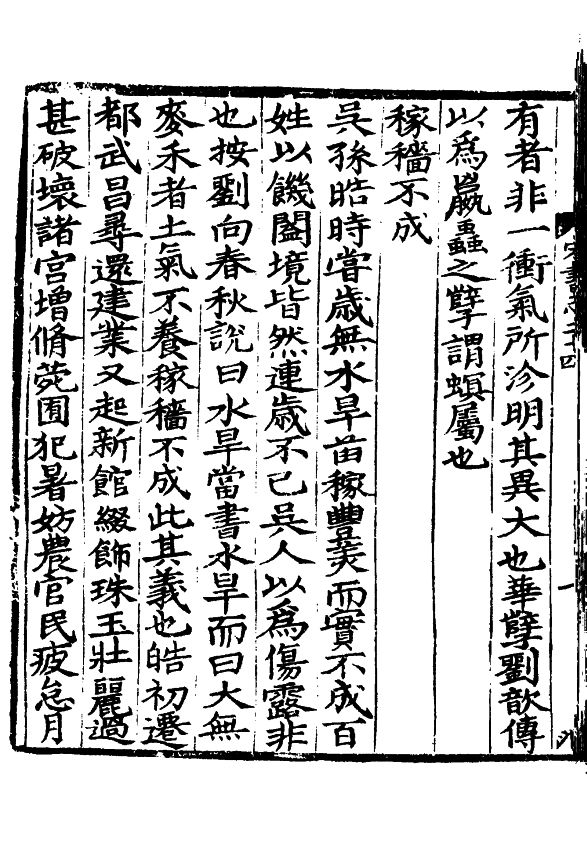 有者非一衝氣所沴明其異大也華孽劉歆傳
以爲蠃蟲之孽謂螟屬也
稼穡不成
吳孫皓時嘗歲無水旱苗稼豐美而實不成百
姓以饑闔境皆然連歲不已吳人以爲傷露非
也按劉向春秋說曰水旱當書水旱而曰大無
麥禾者土氣不養稼穡不成此其義也皓初遷
都武昌尋還建業又起新館綴飾珠玉壯麗過
甚破壞諸宮增脩苑囿犯暑妨農官民疲怠月